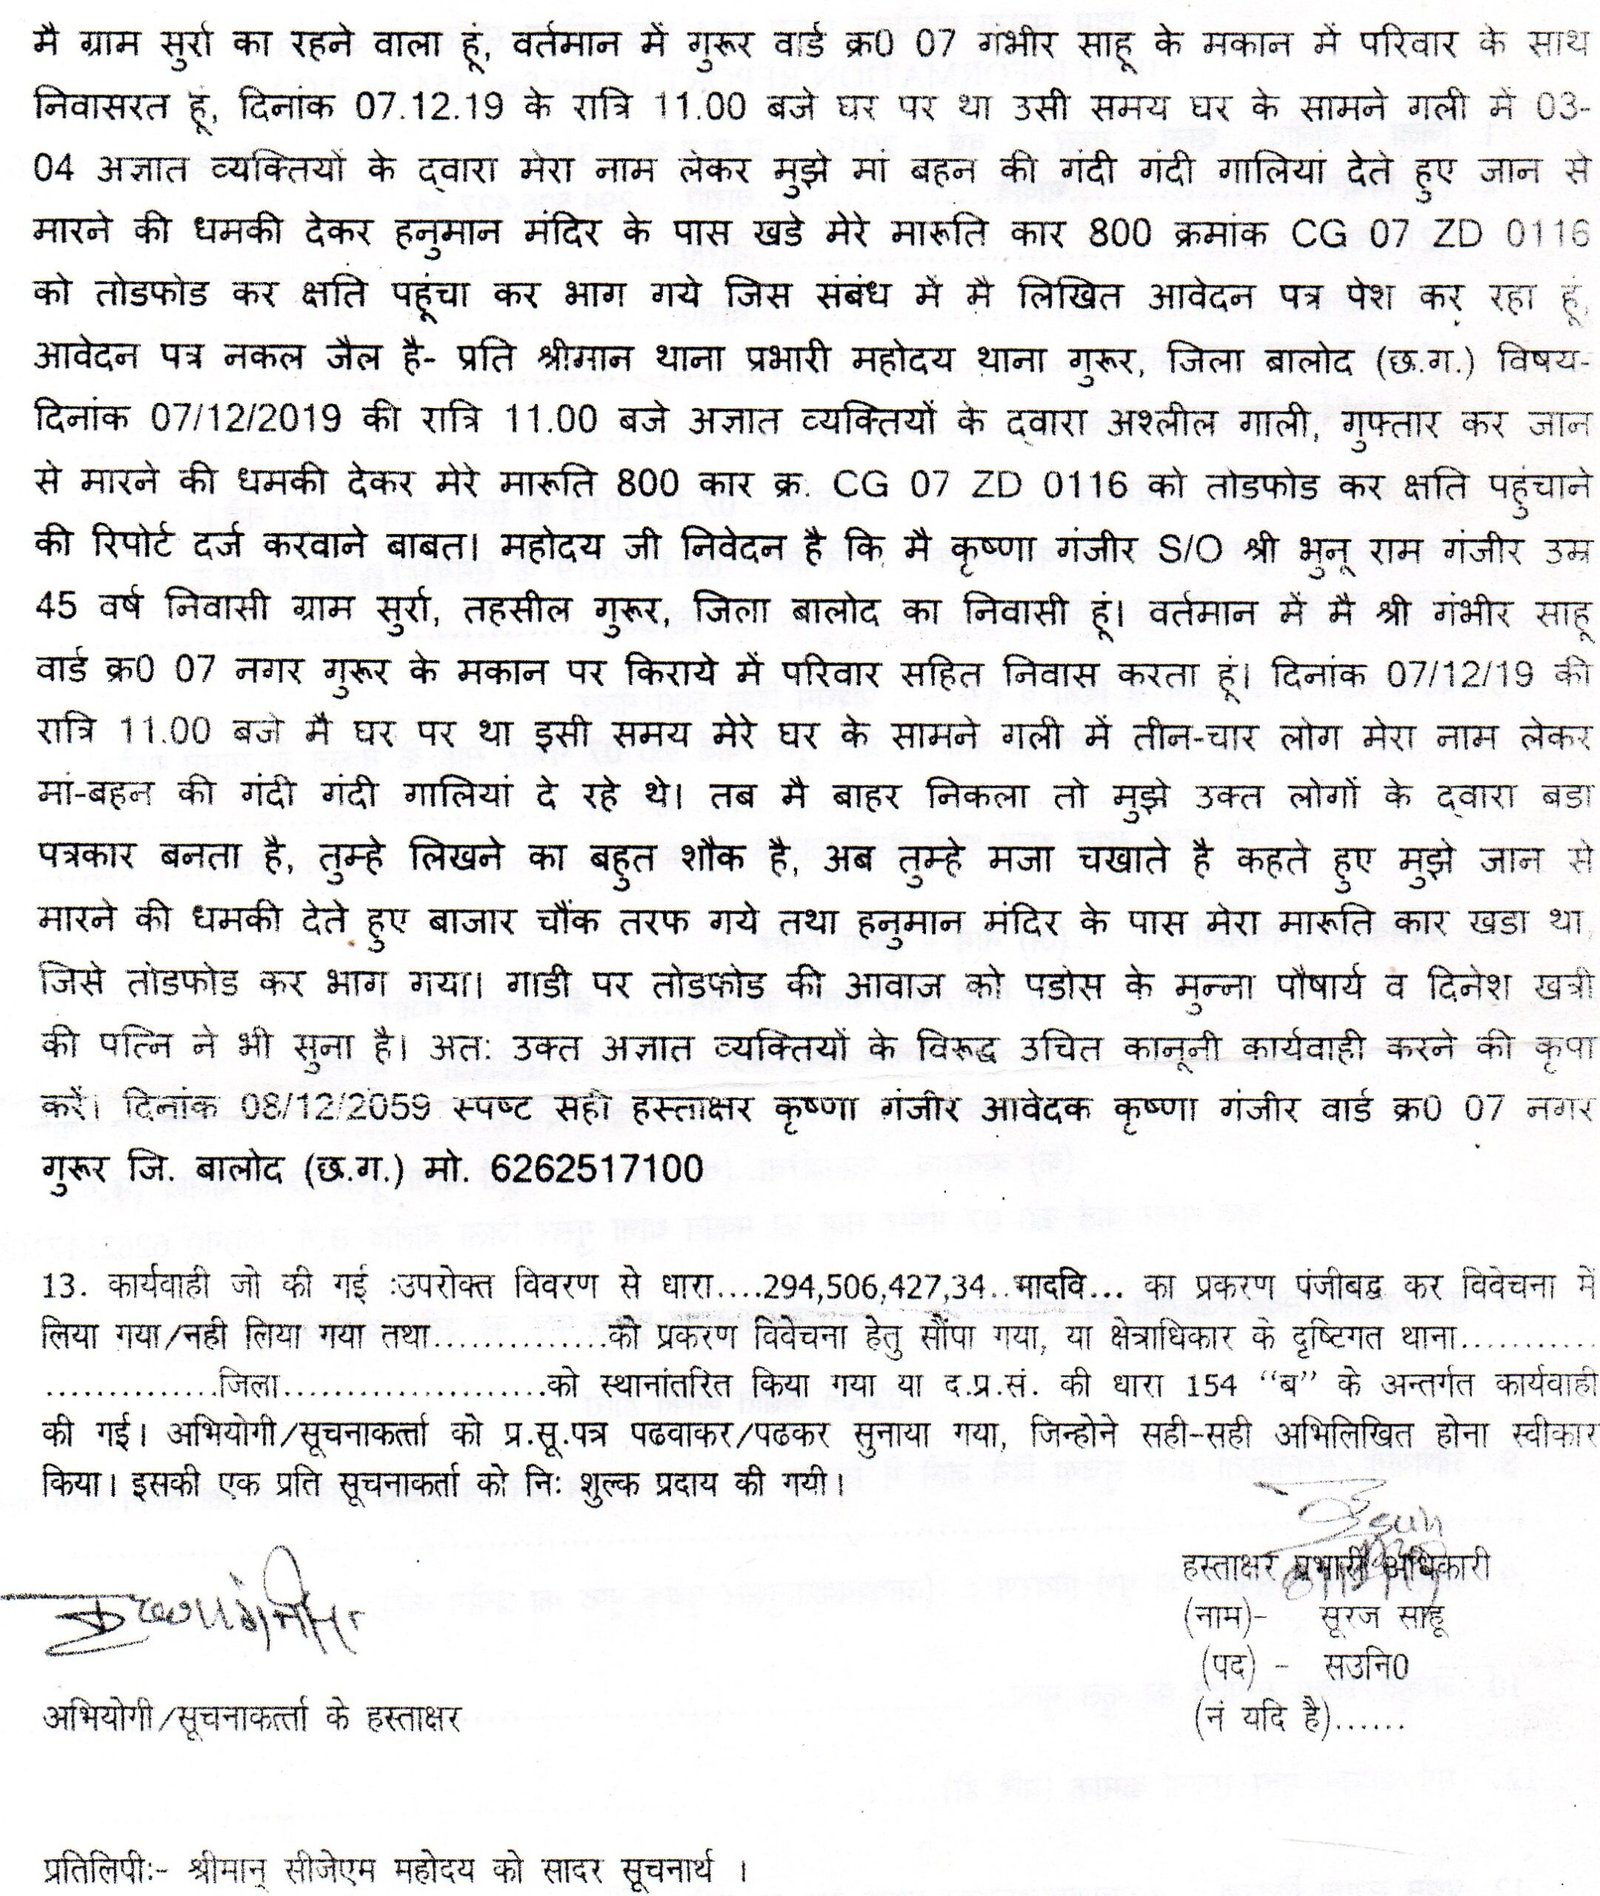 मै ग्राम सुर्रा का रहने वाला हूं, वर्तमान में गुरूर वार्ड क्र0 07 गंभीर साहू के मकान में परिवार के साथ
निवासरत हूं, दिनांक 07.12.19 के रात्रि 11.00 बजे घर पर था उसी समय घर के सामने गली में 03-
04 अज्ञात व्यक्तियों के द्वारा मेरा नाम लेकर मुझे मां बहन की गंदी गंदी गालियां देते हुए जान से
मारने की धमकी देकर हनुमान मंदिर के पास खडे मेरे मारूति कार 800 क्रमांक CG 07 ZD 0116
को तोडफोड कर क्षति पहूंचा कर भाग गये जिस संबंध में मै लिखित आवेदन पत्र पेश कर रहा हूं,
आवेदन पत्र नकल जैल है- प्रति श्रीमान थाना प्रभारी महोदय थाना गुरूर, जिला बालोद (छ.ग.) विषय-
दिनांक 07/12/2019 की रात्रि 11.00 बजे अज्ञात व्यक्तियों के द्वारा अश्लील गाली, गुफ्तार कर जान
से मारने की धमकी देकर मेरे मारूति 800 कार क्र. CG 07 ZD 0116 को तोडफोड कर क्षति पहुंचाने
की रिपोर्ट दर्ज करवाने बाबत। महोदय जी निवेदन है कि मै कृष्णा गंजीर S/O श्री भुनू राम गंजीर उम्र
45 वर्ष निवासी ग्राम सुर्रा, तहसील गुरूर, जिला बालोद का निवासी हूं। वर्तमान में मै श्री गंभीर साहू
वार्ड क्र0 07 नगर गुरूर के मकान पर किराये में परिवार सहित निवास करता हूं। दिनांक 07/12/19 की
रात्रि 11.00 बजे मै घर पर था इसी समय मेरे घर के सामने गली में तीन-चार लोग मेरा नाम लेकर
मां-बहन की गंदी गंदी गालियां दे रहे थे। तब मै बाहर निकला तो मुझे उक्त लोगों के द्वारा बडा
पत्रकार बनता है, तुम्हे लिखने का बहुत शौक है, अब तुम्हे मजा चखाते है कहते हुए मुझे जान से
मारने की धमकी देते हुए बाजार चौंक तरफ गये तथा हनुमान मंदिर के पास मेरा मारूति कार खडा था,
जिसे तोडफोड कर भाग गया। गाडी पर तोडफोड की आवाज को पडोस के मुन्ना पौषार्य व दिनेश खत्री
की पत्नि ने भी सुना है। अतः उक्त अज्ञात व्यक्तियों के विरूद्ध उचित कानूनी कार्यवाही करने की कृपा
करें। दिनांक 08/12/2059 स्पष्ट सही हस्ताक्षर कृष्णा गंजीर आवेदक कृष्णा गंजीर वार्ड क्र0 07 नगर
गुरूर जि. बालोद (छ.ग.) मो. 6262517100
13. कार्यवाही जो की गई :उपरोक्त विवरण से धारा....294,506,427,34..भादवि... का प्रकरण पंजीबद्व कर विवेचना में
लिया गया/नही लिया गया तथा...............को प्रकरण विवेचना हेतु सौंपा गया, या क्षेत्राधिकार के दृष्टिगत थाना............
...............जिला.......................को स्थानांतरित किया गया या द.प्र.सं. की धारा 154 “ब” के अन्तर्गत कार्यवाही
की गई। अभियोगी/सूचनाकर्त्ता को प्र.सू.पत्र पढवाकर/पढकर सुनाया गया, जिन्होने सही-सही अभिलिखित होना स्वीकार
किया। इसकी एक प्रति सूचनाकर्ता को निः शुल्क प्रदाय की गयी।
हस्ताक्षर प्रभारी अधिकारी
कृष्णा गंजीर
(नाम)- सूरज साहू
(पद) - सउनि0
अभियोगी/सूचनाकर्त्ता के हस्ताक्षर
(नं यदि है)......
प्रतिलिपीः- श्रीमान् सीजेएम महोदय को सादर सूचनार्थ ।